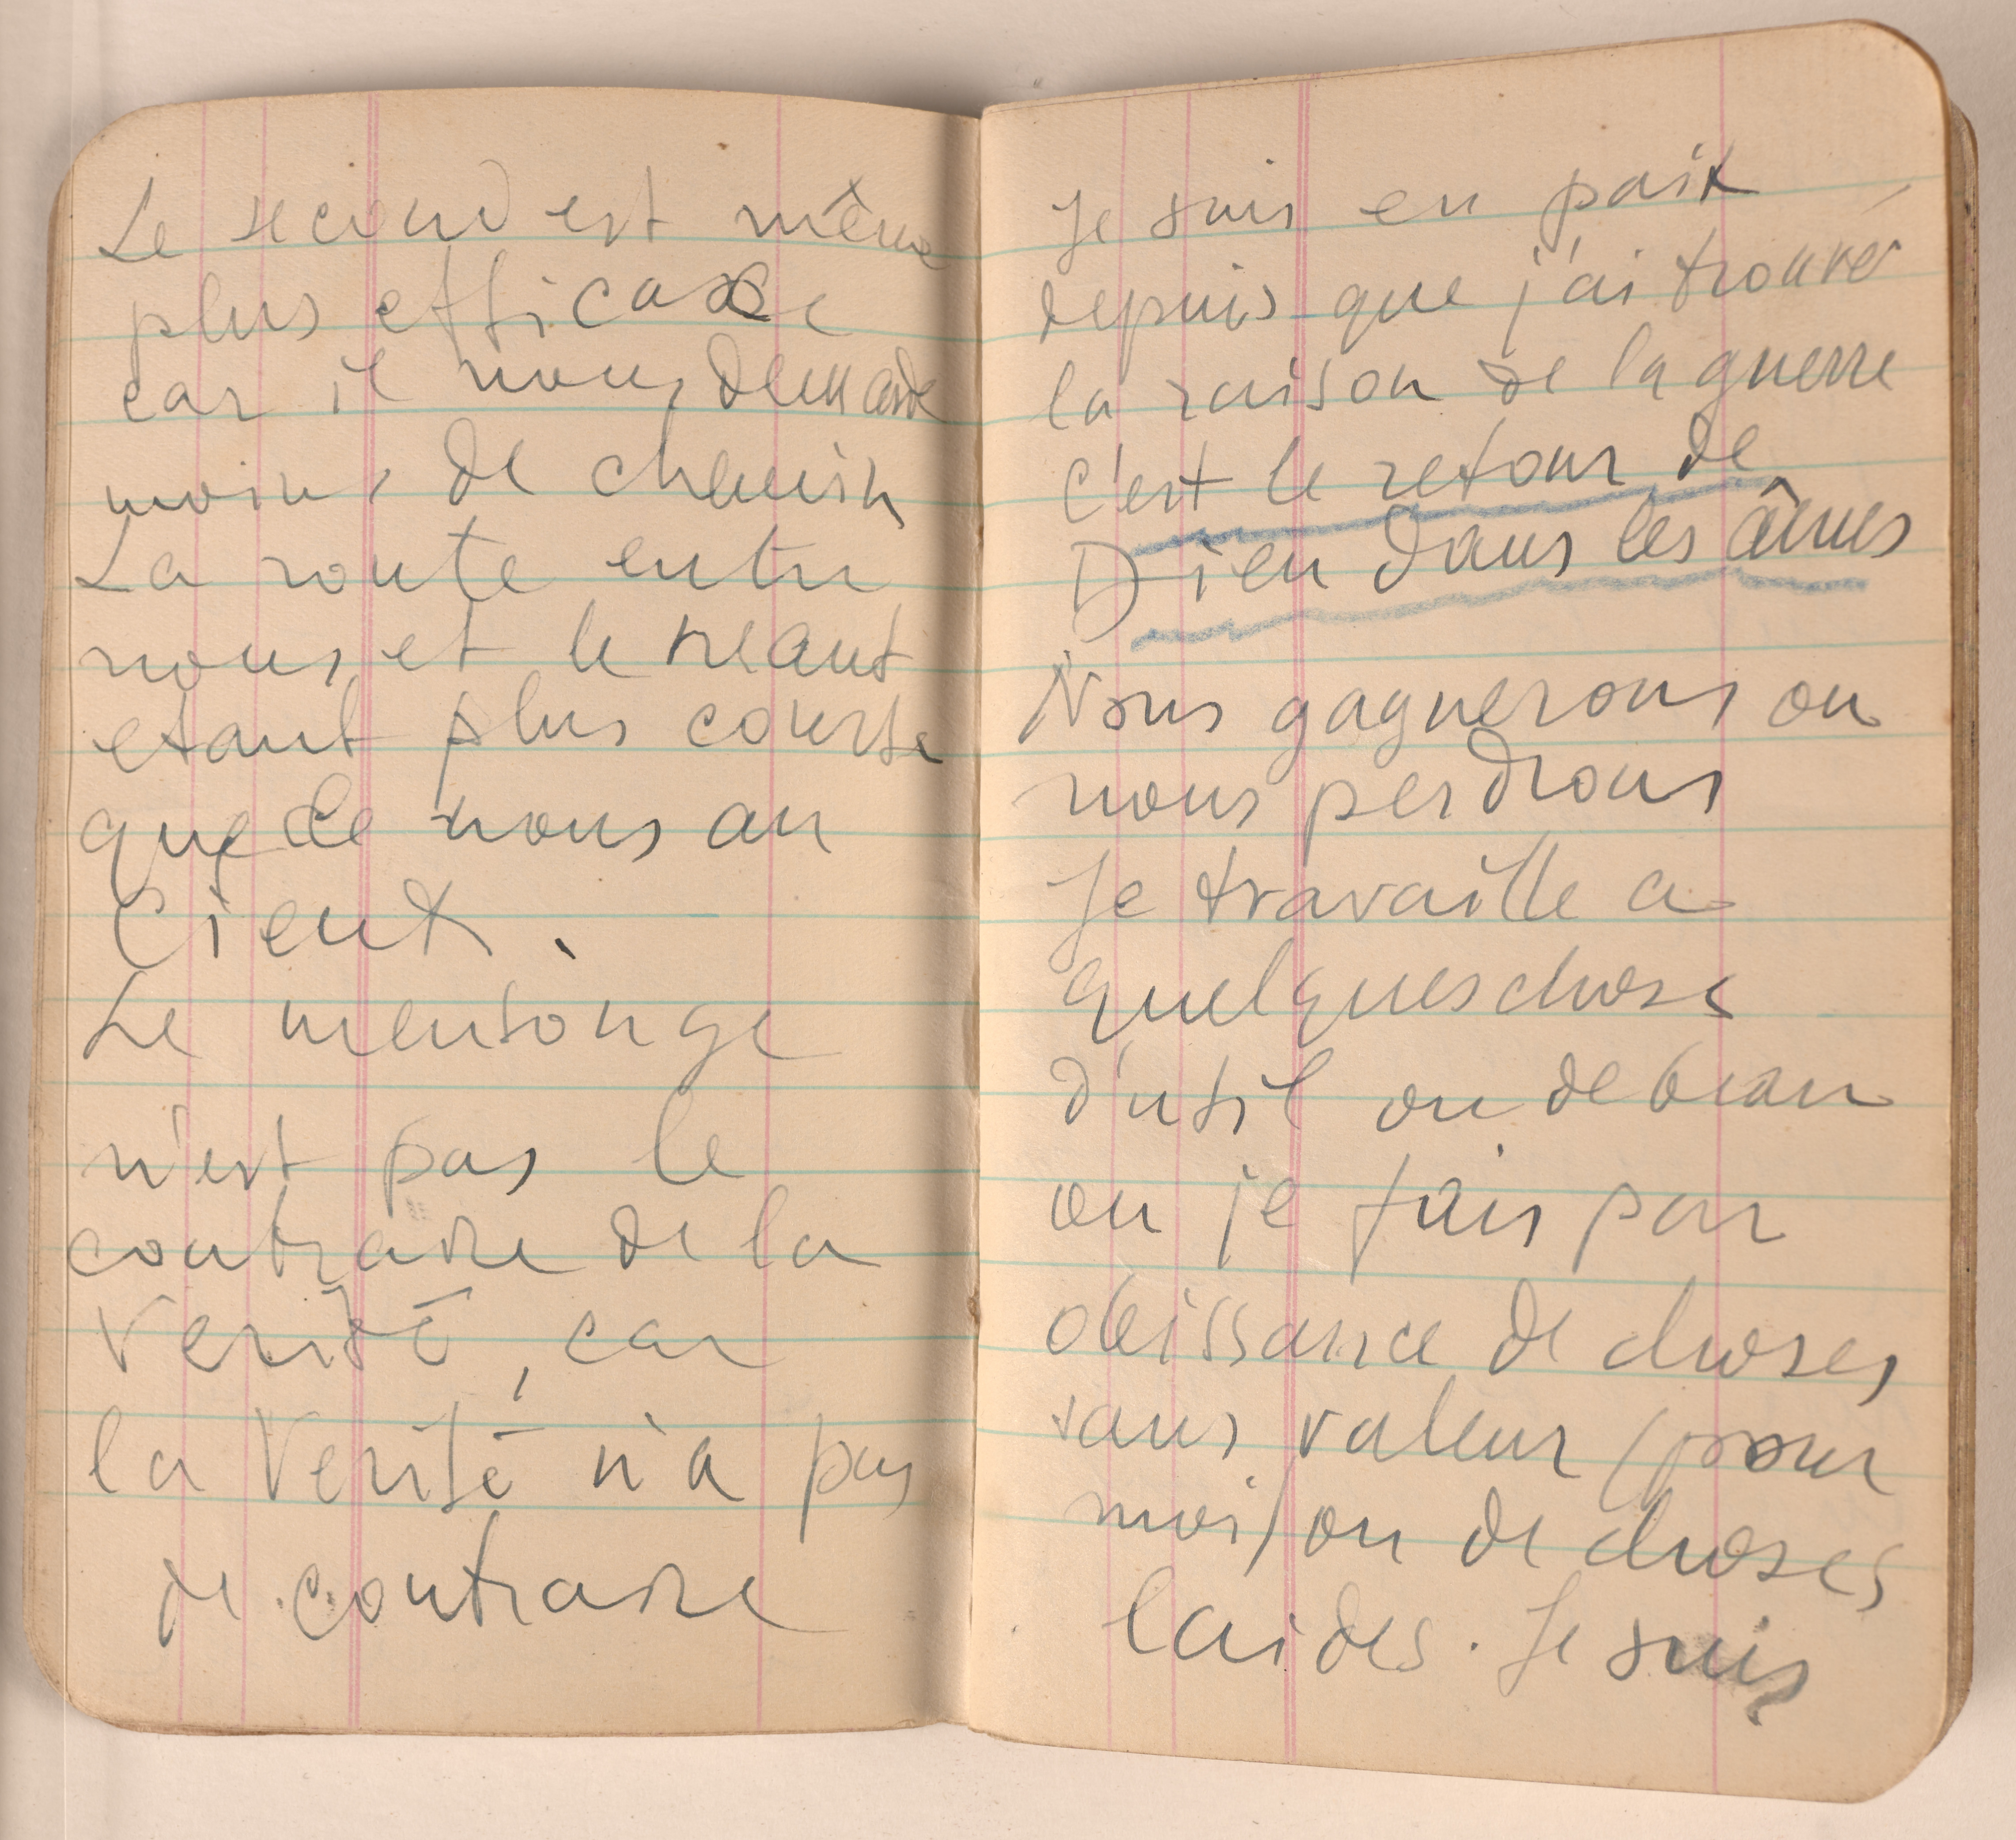 Le second est même
plus efficace
car il nous demande
moins de chemin
La route entre
nous et le neant
etant plus courte
que de nous au
Cieux.
Le mensonge
n'est pas le
contraire de la
Verité, car
la Verité n'a pas
de contraire
Je suis en paix
depuis que j'ai trouvé
la raison de la guerre
c'est le retour de
Dieu dans les âmes
Nous gagnerons ou
nous perdrons
Je travaille a
quelques chose
d'util ou de beau
ou je fais par
obeissance de choses
sans valeur (pour
moi) ou de choses
laides. Je suis